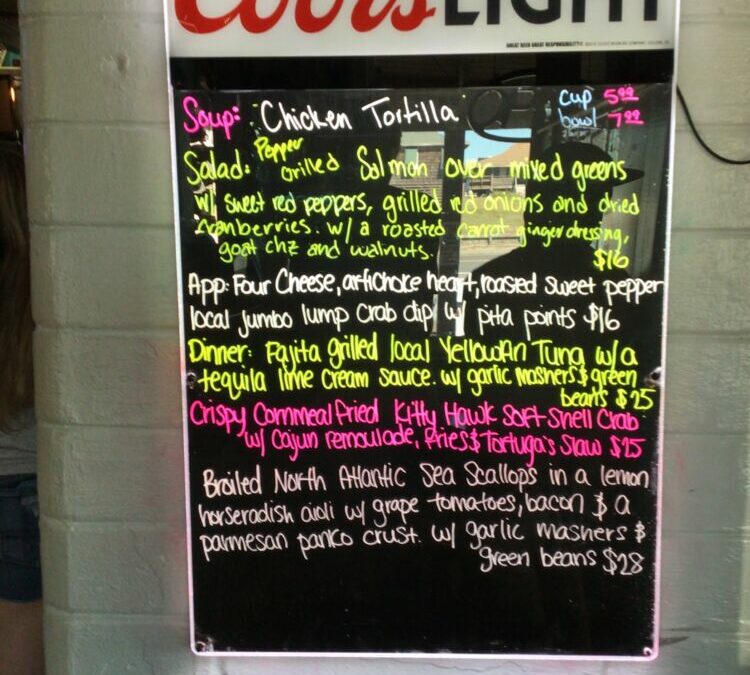 Coors LIGHT
GREAT BEER GREAT RESPONSIBILITY®
Soup: Chicken Tortilla cup 5.99
bowl 7.99
Salad: Pepper Grilled Salmon over mixed greens
w/ sweet red peppers, grilled red onions and dried
cranberries. w/ a roasted carrot ginger dressing,
goat chz and walnuts. $16
App: Four Cheese, artichoke heart, roasted sweet pepper
local jumbo lump crab dip w/ pita points $16
Dinner: Fajita grilled local Yellowfin Tuna w/ a
tequila lime cream sauce. w/ garlic mashers & green
beans $25
Crispy Cornmeal fried Kitty Hawk Soft-Shell Crab
w/ Cajun remoulade, fries & Tortuga's Slaw $25
Broiled North Atlantic Sea Scallops in a lemon
horseradish aioli w/ grape tomatoes, bacon & a
parmesan panko crust. w/ garlic mashers &
green beans $28